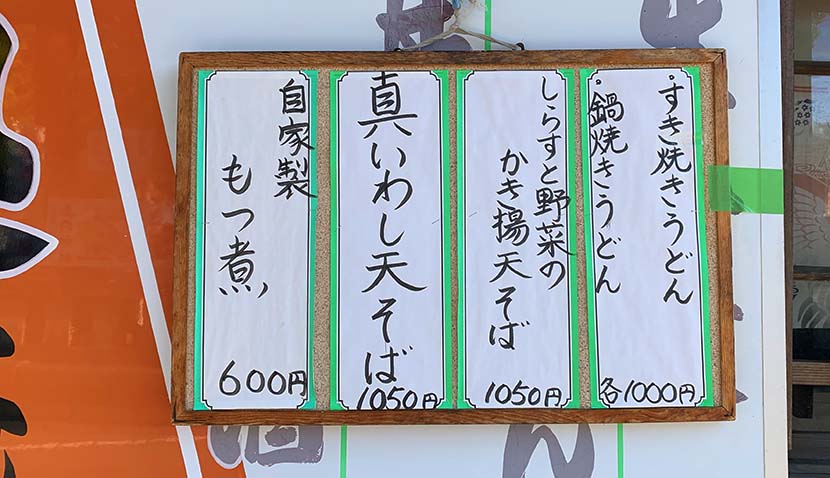 ・すき焼きうどん
・鍋焼きうどん
各1000円
しらすと野菜の
かき揚天そば
1050円
真いわし天そば
1050円
自家製
もつ煮
600円